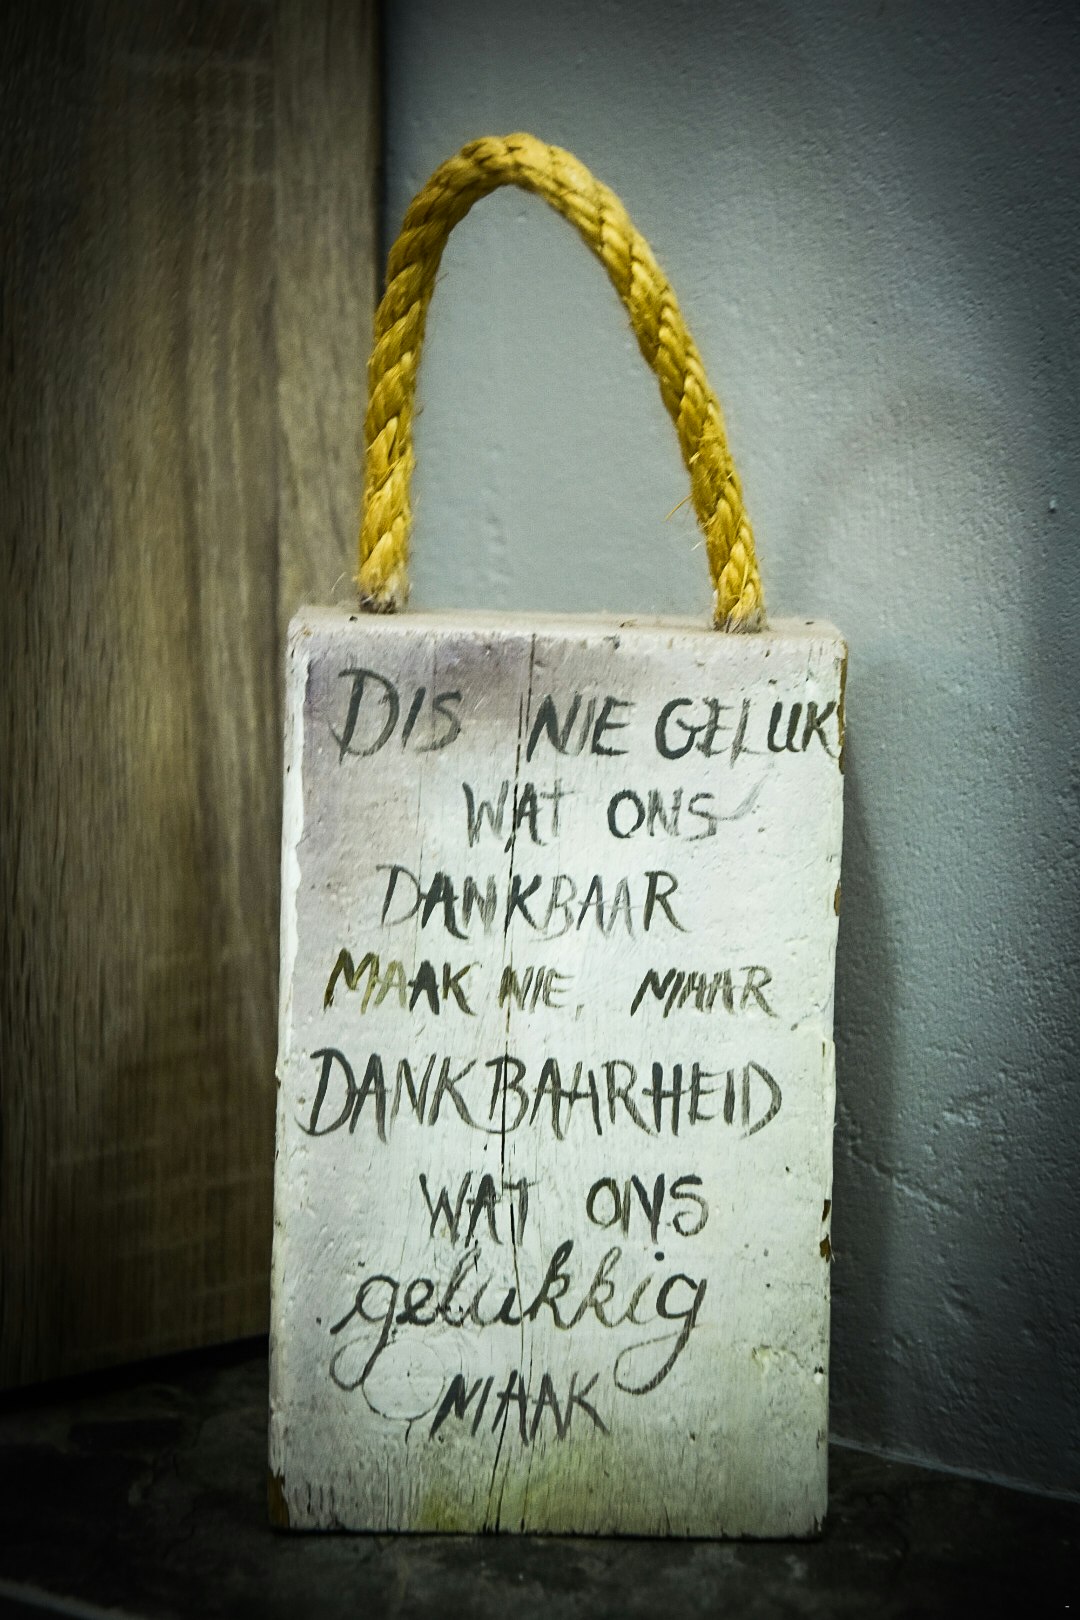 DIS NIE GELUK
WAT ONS
DANKBAAR
MAAK NIE, MAAR
DANKBAARHEID
WAT ONS
gelukkig
MAAK